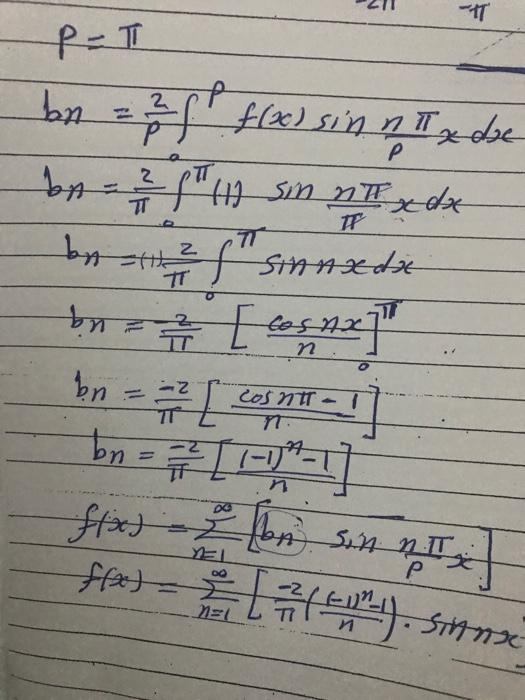 -2π -π
P = π
bn = 2/P ∫₀^P f(x) sin nπ/P x dx
bn = 2/π ∫₀^π (1) sin nπ/π x dx
bn = (1) 2/π ∫₀^π sin nx dx
bn = -2/π [cos nx/n]₀^π
bn = -2/π [cos nπ - 1/n]
bn = -2/π [(-1)^n - 1/n]
f(x) = ∑_{n=1}^∞ [bn sin nπ/P x]
f(x) = ∑_{n=1}^∞ [-2/π ((-1)^n - 1/n) . sin nx